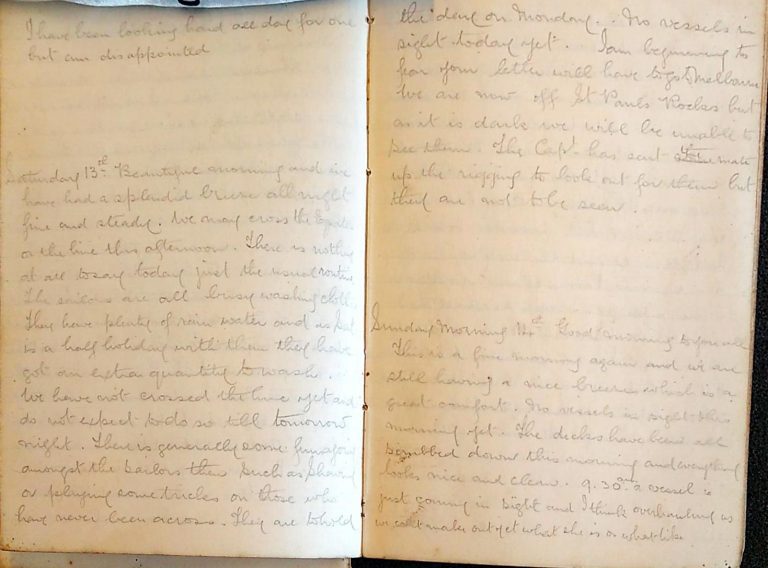 I have been looking hard all day for one
but am disappointed
Saturday 13th Beautiful morning and we
have had a splendid breeze all night
fine and steady. We may cross the Equator
or the line this afternoon. There is nothing
at all to say today just the usual routine
The sailors are all busy washing clothes
They have plenty of rain water and as Sat
is a half holiday with them they have
got an extra quantity to wash.
We have not crossed the line yet and
do not expect to do so till tomorrow
night. There is generally some fun going
amongst the sailors then such as shaving
or playing some tricks on those who
have never been across. They are to hold
the day on Monday. No vessels in
sight today yet. I am beginning to
fear your letter will have to go to Melbourne
We are now off St Pauls Rocks but
as it is dark we will be unable to
see them. The Capt. has sent the mate
up the rigging to look out for them but
they are not to be seen.
Sunday Morning 14th Good morning to you all
This is a fine morning again and we are
still having a nice breeze which is a
great comfort. No vessels in sight this
morning yet. The decks have been all
scrubbed down this morning and everything
looks nice and clean. 9.30am a vessel is
just coming in sight and I think overhauling us
we cant make out yet what she is or what like